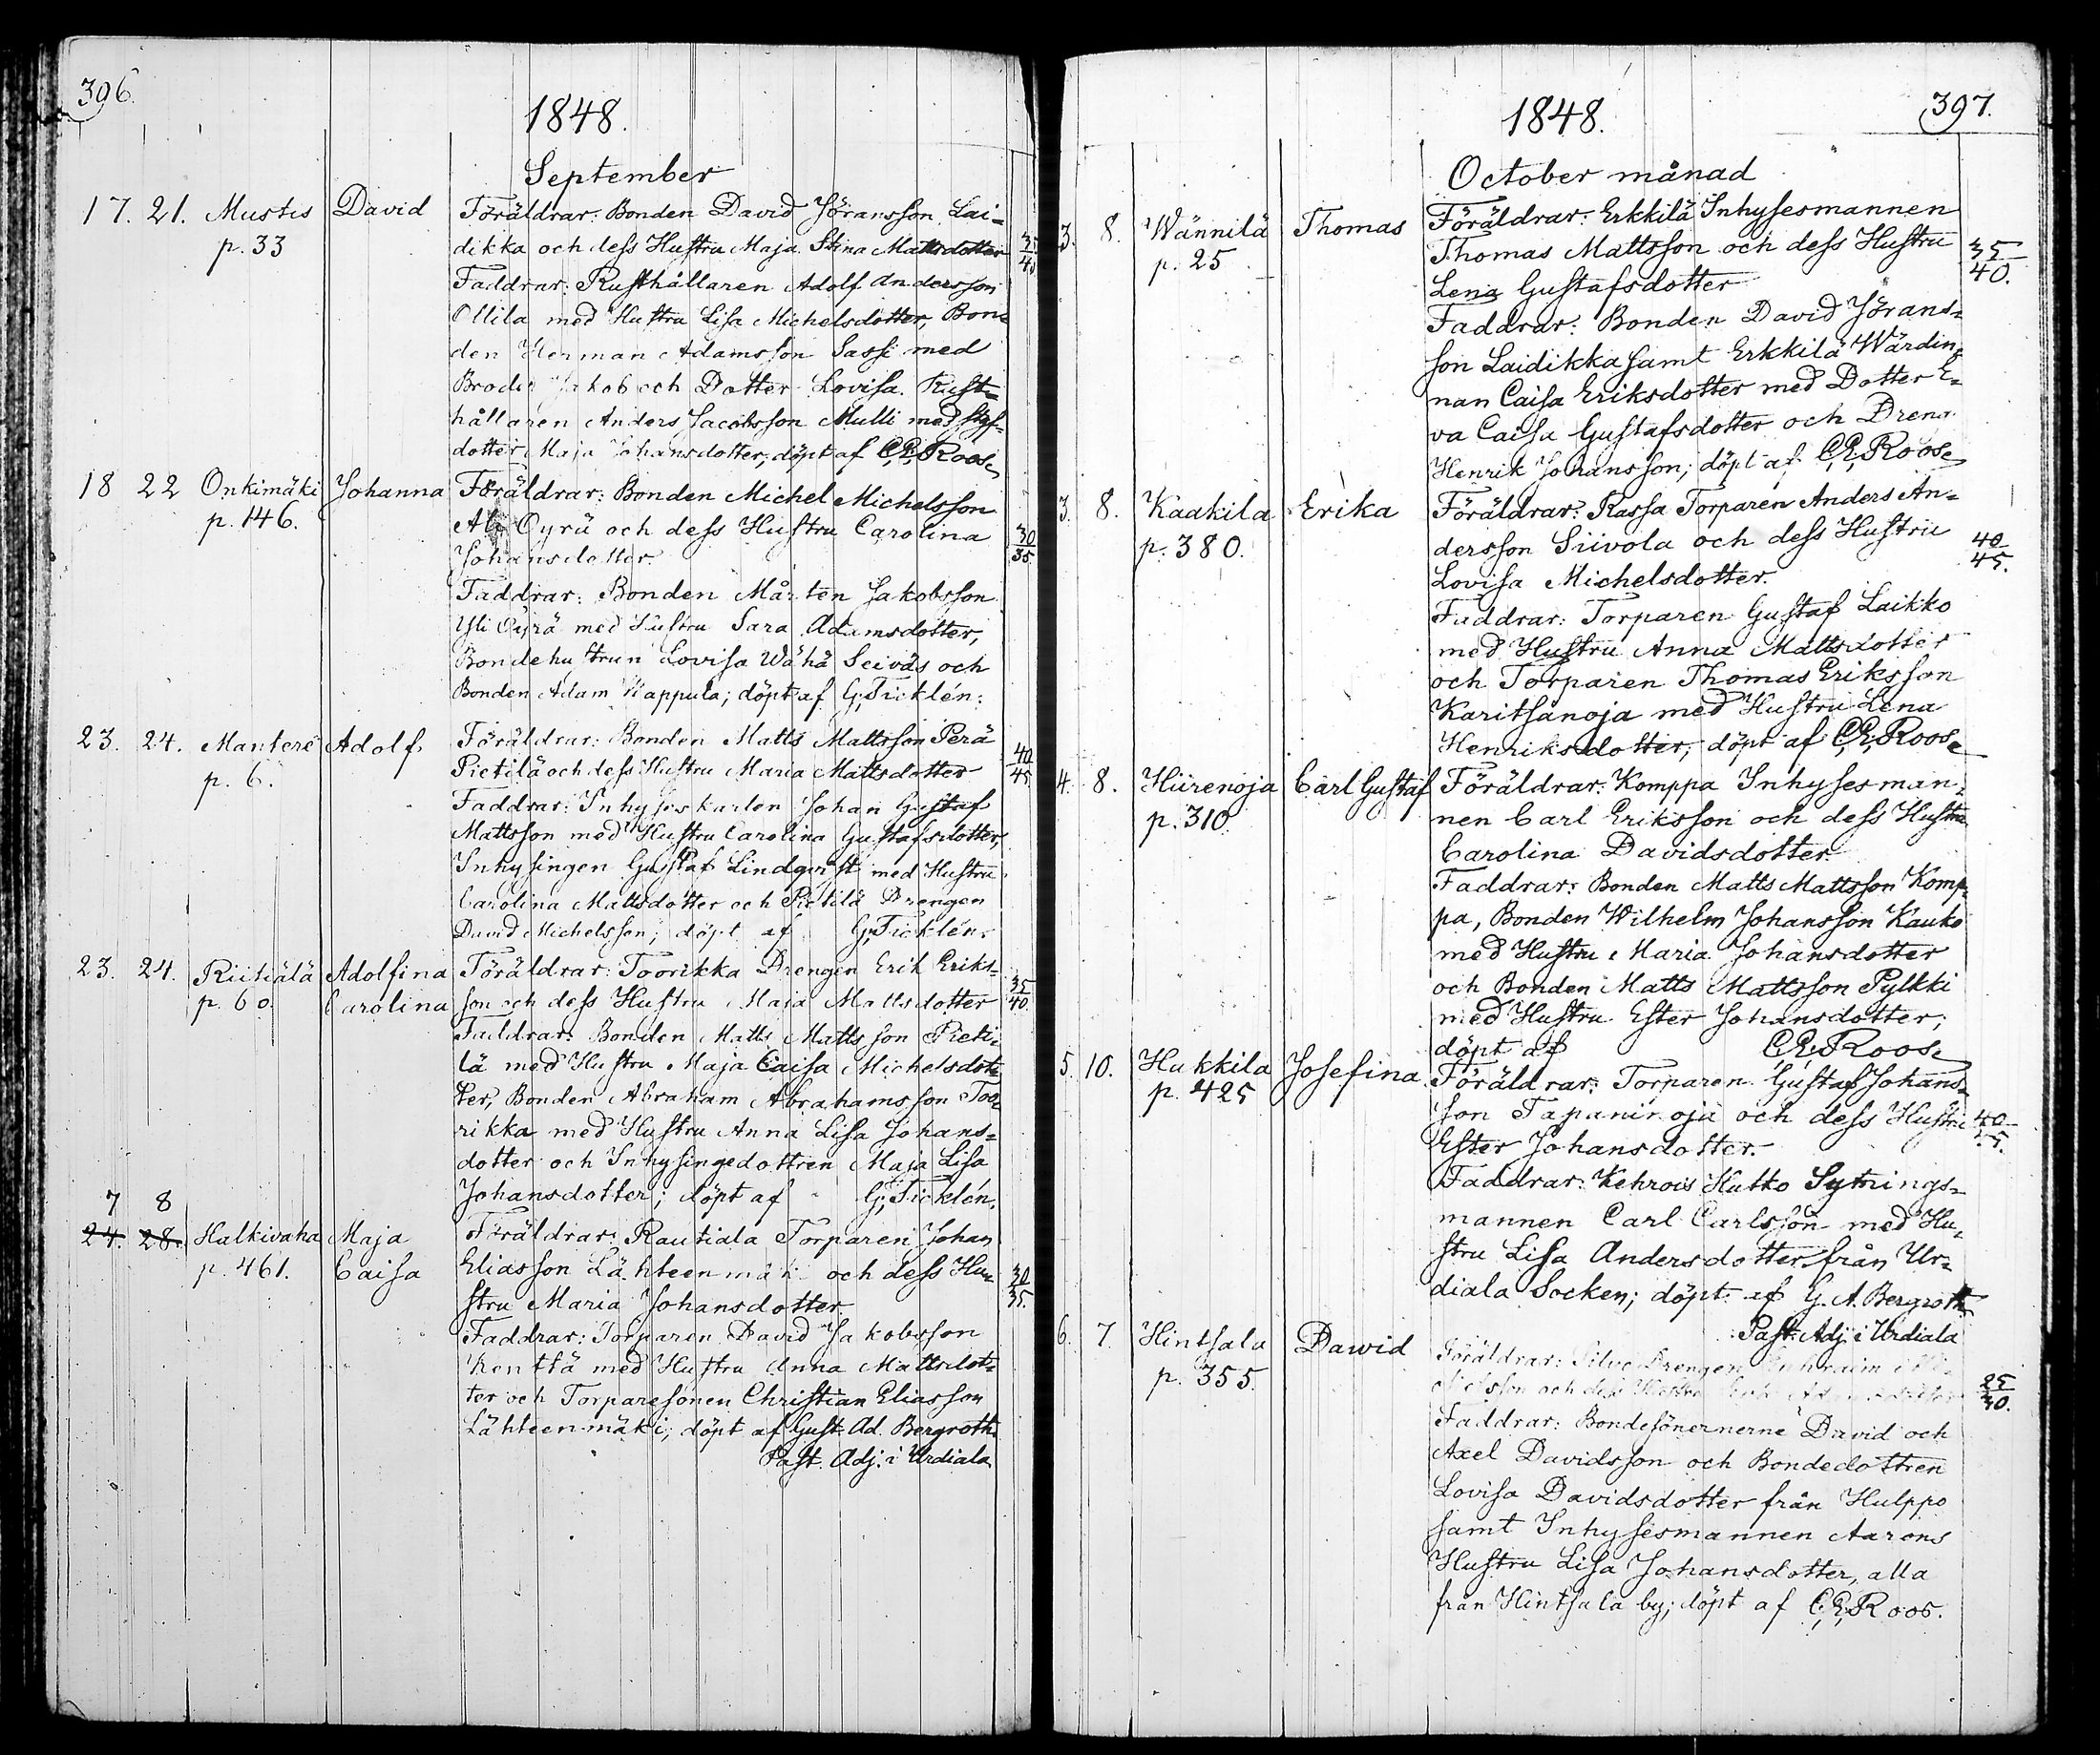 396.
1848.
September
17. 21. Mustis David Föräldrar: Bonden David Jöransson Lai-
p. 33 dikka och dess Hustru Maja Stina Mattsdotter 35/40
Faddrar: Rusthållaren Adolf Andersson
Ollila med Hustru Lisa Michelsdotter, Bon-
den Herman Adamsson Sassi med
Broder Jakob och Dotter Lovisa. Rust-
hållaren Anders Jacobsson Mulli med Styf-
dotter Maja Johansdotter; döpt af C,E,Roos.
18 22 Onkimäki Johanna Föräldrar: Bonden Michel Michelsson
p. 146. Ali Öyrä och dess Hustru Carolina 30/35
Johansdotter.
Faddrar: Bonden Mårten Jakobsson
Yli Öyrä med Hustru Sara Adamsdotter,
Bondehustrun Lovisa Wähä Seiväs och
Bonden Adam Kappula; döpt af G,Ticklén.
23. 24. Manterè Adolf Föräldrar: Bonden Matts Mattsson Perä
p. 6. Pietilä och dess Hustru Maria Mattsdotter 40/45
Faddrar: Inhyseskarlen Johan Gustaf
Mattsson med Hustru Carolina Gustafsdotter,
Inhysingen Gustaf Lindqvist med Hustru
Carolina Mattsdotter och Pietilä Drengen
David Michelsson; döpt af G,Ticklén.
23. 24. Riitiälä Adolfina Föräldrar: Toorikka Drengen Erik Eriks-
p. 60. Carolina son och dess Hustru Maja Mattsdotter 35/40.
Faddrar: Bonden Matts Mattsson Pieti-
lä med Hustru Maja Caisa Michelsdot-
ter, Bonden Abraham Abrahamsson Too-
rikka med Hustru Anna Lisa Johans-
dotter och Inhysingedottren Maja Lisa
Johansdotter; döpt af G,Ticklén.
7 8
24. 28. Halkivaha Maja Föräldrar: Rautiala Torparen Johan
p. 461. Caisa Eliasson Lähteenmäki och dess Hu- 30/35.
stru Maria Johansdotter.
Faddrar: Torparen David Jakobsson
Kenttä med Hustru Anna Mattsdot-
ter och Torparesonen Christian Eliasson
Lähteenmäki; döpt af Gust. Ad. Bergroth.
Past. Adj. i Urdiala
397.
1848.
October månad
3. 8. Wännilä Thomas Föräldrar: Erkkilä Inhysesmannen
p. 25 Thomas Mattsson och dess Hustru 35/40.
Lena Gustafsdotter
Faddrar: Bonden David Jörans-
son Laidikka samt Erkkilä Wärdin-
nan Caisa Eriksdotter med Dotter E-
va Caisa Gustafsdotter och Dreng
Henrik Johansson; döpt af C,E,Roos.
3. 8. Kaakila Erika Föräldrar: Rassa Torparen Anders An-
p. 380. dersson Siivola och dess Hustru 40/45.
Lovisa Michelsdotter.
Faddrar: Torparen Gustaf Laikko
med Hustru Anna Mattsdotter
och Torparen Thomas Eriksson
Karitsanoja med Hustru Lena
Henriksdotter; döpt af C,E,Roos.
4. 8. Hiirenoja Carl Gustaf Föräldrar: Komppa Inhysesman-
p. 310. nen Carl Eriksson och dess Hustru
Carolina Davidsdotter.
Faddrar: Bonden Matts Mattsson Komp-
pa, Bonden Wilhelm Johansson Kauko
med Hustru Maria Johansdotter
och Bonden Matts Mattsson Pylkki
med Hustru Ester Johansdotter;
döpt af C,E,Roos.
5. 10. Hukkila Josefina. Föräldrar: Torparen Gustaf Johans-
p. 425 son Tapaninoja och dess Hustru 40/45.
Ester Johansdotter.
Faddrar: Kehrois Hutko Sytnings-
mannen Carl Carlsson med Hu-
stru Lisa Andersdotter från Ur-
diala Socken; döpt af G. A. Bergroth
Past. Adj. i Urdiala
6. 7. Hintsala Dawid Föräldrar: Drengen
p. 355. och dess Hustru 25/30.
Faddrar: Bondesönernerne David och
Axel Davidsson och Bondedottren
Lovisa Davidsdotter från Hulppo
samt Inhysesmannen Aarons
Hustru Lisa Johansdotter, alla
från Hintsala by; döpt af C,E,Roos.